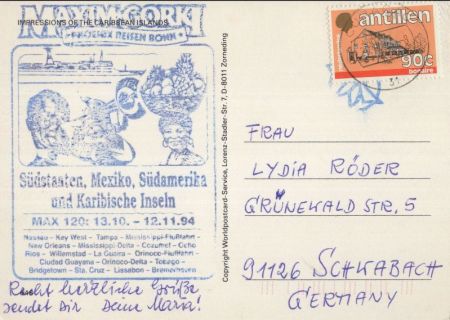 MAXIM GORKI
IMPRESSIONS OF THE CARIBBEAN ISLANDS
PHOENIX REISEN BONN
Südstaaten, Mexiko, Südamerika
und Karibische Inseln
MAX 120: 13.10. - 12.11.94
Nassau - Key West - Tampa - Mississippi-Flußfahrt -
New Orleans - Mississippi-Delta - Cozumel - Ocho
Rios - Willemstad - La Guaira - Orinoco-Flußfahrt -
Ciudad Guayana - Orinoco-Delta - Tobago -
Bridgetown - Sta. Cruz - Lissabon - Bremerhaven
Recht herzliche Grüße
sendet Dir Deine Maria!
Copyright Worldpostcard-Service, Lorenz-Stadler-Str. 7, D-8011 Zorneding
antillen
90c
bonaire
31
FRAU
LYDIA RÖDER
GRÜNEWALD STR, 5
91126 SCHWABACH
GERMANY